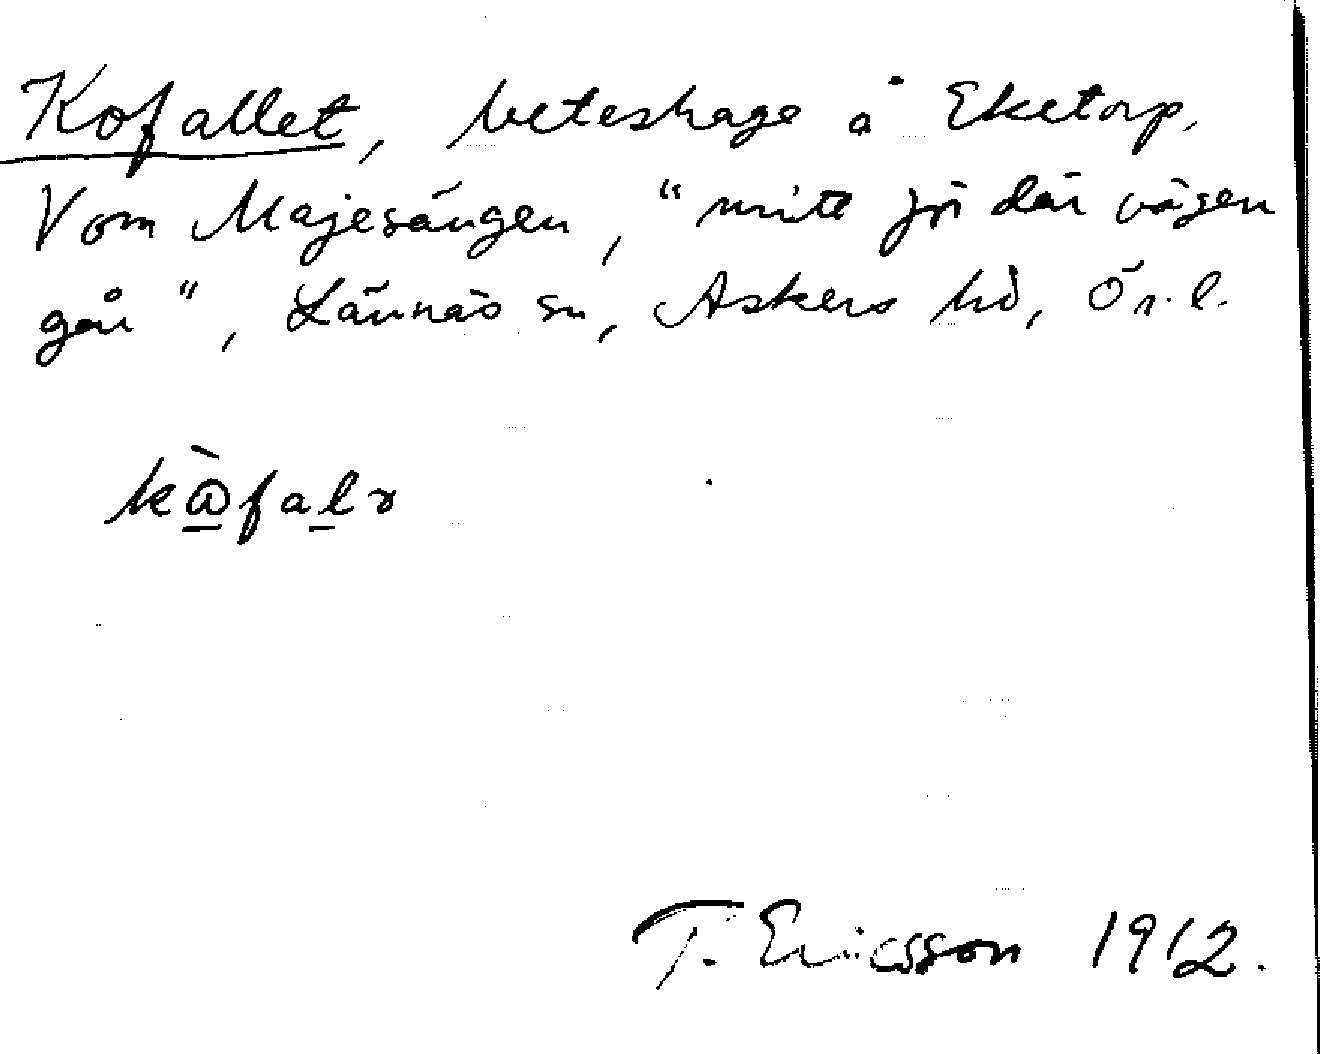 Kofallet, beteshage å Eketorp,
V om Majesängen, "mitt för där vägen
går", Lännäs sn, Askers hd, Ör. l.
T. Ericsson 1912.